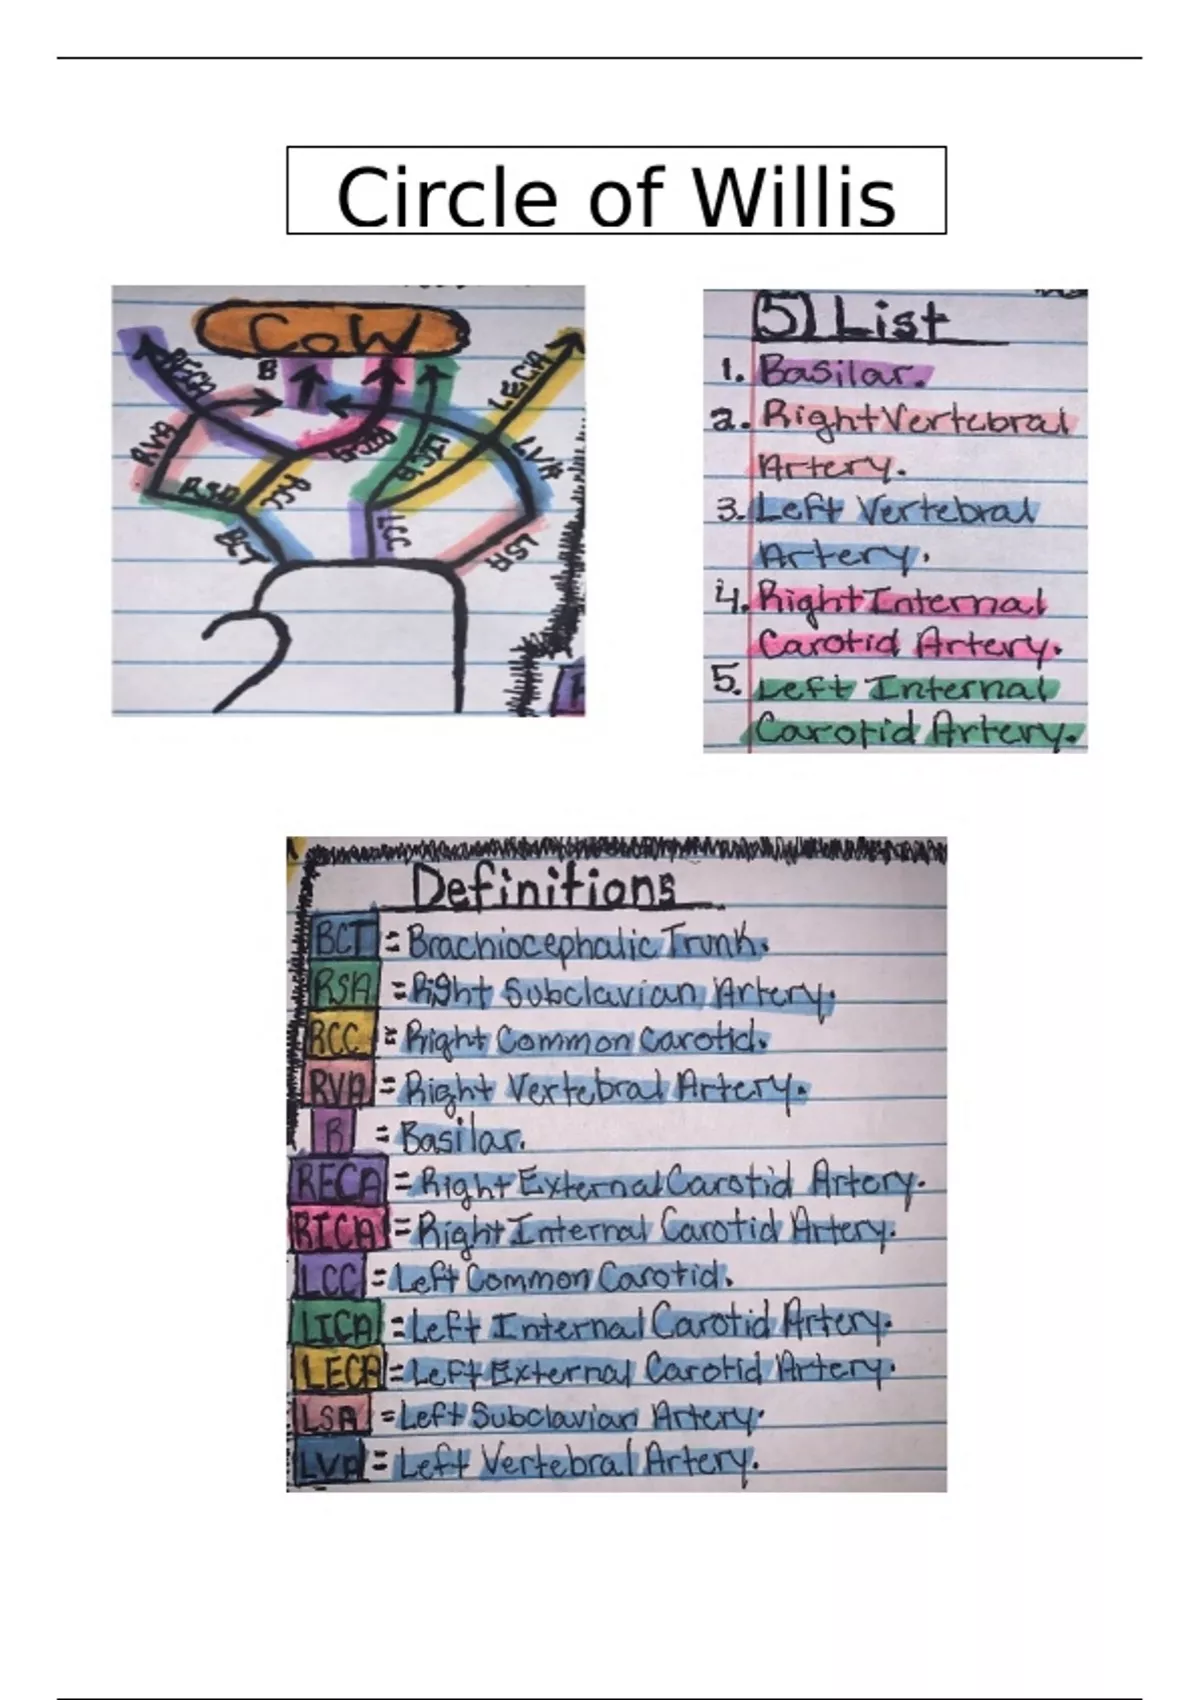 Circle of Willis
CoW
B
RECA
LECA
RVA
RICA
LICA
LVA
RSA
RCC
BCT
LCC
LSA
5) List
1. Basilar.
2. Right Vertebral
Artery.
3. Left Vertebral
Artery.
4. Right Internal
Carotid Artery.
5. Left Internal
Carotid Artery.
Definitions
BCT = Brachiocephalic Trunk.
RSA = Right Subclavian Artery.
RCC = Right Common Carotid.
RVA = Right Vertebral Artery.
B = Basilar.
RECA = Right External Carotid Artery.
RICA = Right Internal Carotid Artery.
LCC = Left Common Carotid.
LICA = Left Internal Carotid Artery.
LECA = Left External Carotid Artery.
LSA = Left Subclavian Artery.
LVA = Left Vertebral Artery.